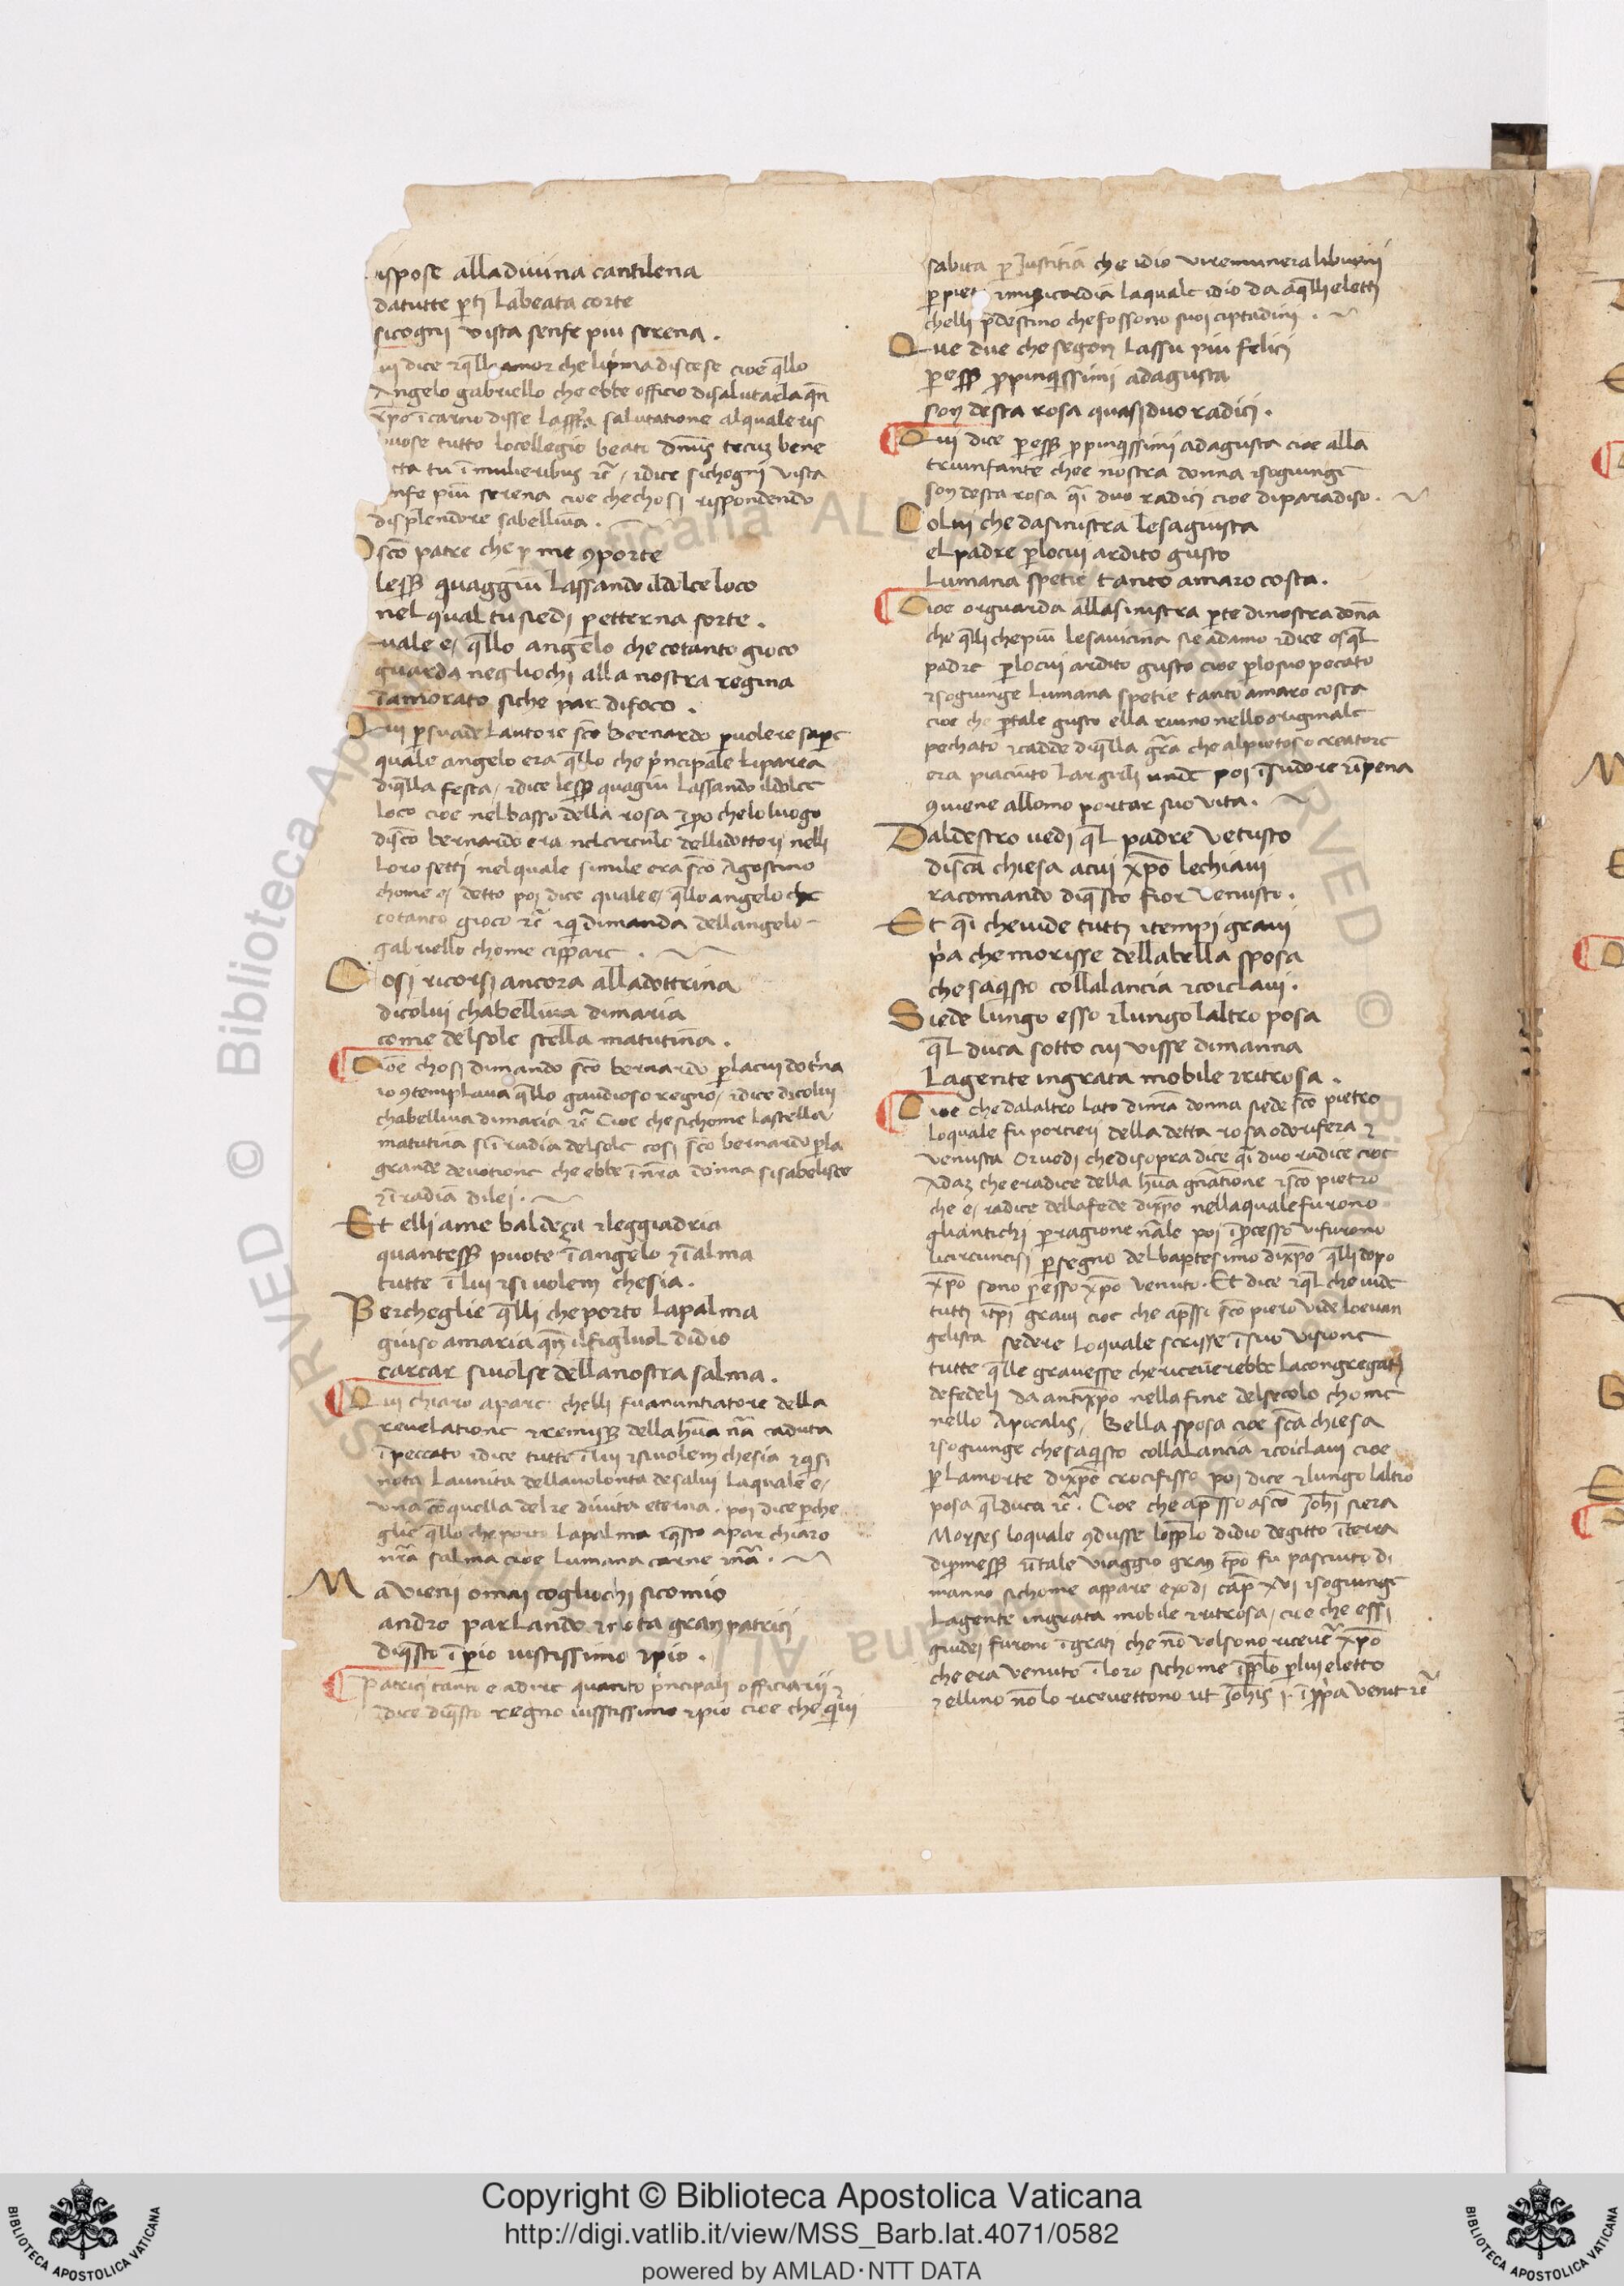 ispose alladivina cantilena
datutte pti labeata corte
sicogni vista senfe piu serena .
dice eqll amor che lipma discese cioe qllo
Angelo gabriello che ebbe officio disalutarla qn
xpo icarno disse salutatione alquale ris
puose tutto locollegio beato dnus tecuz bene
tta tu i mulieribus ec / edice sichogni vista
nfe piu serena cioe chechosi rispondendo
displendore sabelliva .
O sco patre che p me 9porte
lesse quaggiu lassando ildolce loco
nel qual tu siedi petterna sorte .
uale e / qllo angelo che cotanto gioco
guarda negliochi alla nostra regina
iamorato siche par difoco .
Qui psuade lautore sco bernardo pvolere sape
quale angelo era qllo che pncipale liparea
diqlla festa / edice lesse quagiu lassando ildolce
loco cioe nelbasso della rosa ipo cheloluogo
disco bernardo era nelcirculo dellidottori nelli
loro setti nelquale simile era sco Agostino
chome e / detto poi dice quale e / qllo angelo che
cotanto gioco ec eq dimanda dellangelo
gabriello chome cipparc .
Cosi ricorsi ancora alladottrina
dicolui chabelliva dimaria
come delsole stella matutina .
Cioe chosi dimando sco bernardo placui dotna
io 9templava qllo gaudioso regno / edice dicolui
chabelliva dimaria ec Cioe che sichome lastella
matutina siiradia delsole cosi sco bernardo pla
grande devotione che ebbe inra donna sisabelisce
eiradia dilei .
Et elli ame baldeça eleggiadria
quantesse puote iangelo eialma
tutte ilui esi volem chesia .
Percheglie qlli che porto lapalma
giuso amaria qn ilfigluol didio
carcar sivolse dellanostra salma .
Qui chiaro aparc chelli fu anuntiatore della
revelatione eremisse della hua na caduta
ipeccato edice tutte ilui esivolem chesia eqsi
nota launita dellavolonta desalvi laquale e /
una conquella del re divita eterna . poi dice pche
glie qllo che porto lapalma eqsto apar chiaro
nra salma cioe lumana carne ena .
Ma vieni omai cogliochi sicomio
andro parlando enota gran patrici
diqsto ipio iustissimo epio .
Patrici tanto e adire quanto pncipali officiarii e
edice diqsto regno iusstissimo epio cioe che quivi
sabita p Justitia che idio viremunera libuoni
p pieta emisicordia laquale idio da aqlli eletti
chelli pdestino chefossono suoi ciptadini .
Que due che segon lassu piu felici
pesse ppinqissimi adagusta
son desta rosa quasi duo radici .
Qui dice pesse ppinqissimi adagusta cioe alla
triunfante chee nostra donna esogiunge
son desta rosa qi duo radici cioe diparadiso .
Colui che dasinistra lesagiusta
el padre plocui ardito gusto
lumana spetie tanto amaro costa .
Cioe orguarda allasinistra pte dinostra dona
che qlli chepiu lesavicina sie adamo edice es ql
padre plocui ardito gusto cioe plosuo pecato
esogiunge lumana spetie tanto amaro costa
cioe che ptale gusto ella ruino nello originale
pechato ecadde diqlla gra che alpietoso creatore
era piaciuto largirli unde poi isudore eipena
9viene allomo portar suo vita .
Daldestro vedi ql padre vetusto
disca chiesa acui xpo lechiavi
racomando diqsto fior venusto .
Et qi chevide tutti itempi gravi
pa che morisse dellabella sposa
che saqisto collalancia ecoiclavi .
Siede lungo esso elungo laltro posa
ql duca sotto cui visse dimanna
lagente ingrata mobile eritrosa .
Cioe che dalaltro lato dinra donna siede sco pietro
loquale fu portieri della detta rosa odorifera e
venusta Orvedi che disopra dice qi duo radice cioe
Adaz che eradice della hua gnatione esco pietro
che e / radice dellafede dixpo nellaquale furono
gliantichi pragione nale poi ipcesso vifurono
licircuncisi psegno delbaptesimo dixpo qlli dopo
xpo sono pesso xpo venuto . Et dice eql che vide
tutti itpi gravi cioe che apsso sco piero vide loevan
gelista sedere loquale scrisse isuo visione
tutte qlle gravesse chericeverebbe lacongregati
defedeli da antixpo nella fine delsecolo chome
nello Apocalis / Bella sposa cioe sca chiesa
esogiunge che saqisto collalancia ecoiclavi cioe
p lamorte dixpo crocifisso poi dice elungo laltro
posa ql duca ec . Cioe che apsso asco Johi siera
Moyses loquale 9dusse lopplo didio degitto iterra
dipmesse eitale viaggio gran tpo fu pasciuto di
manno sichome appare exodi cap xvi esogiunge
lagente ingrata mobile eritrosa / cioe che essi
giudei furono igrati che no volsono ricevere xpo
che era venuto iloro sichome ipplo plui eletto
e ellino nolo ricevettono ut Johis i . ippa venit ec
Copyright © Biblioteca Apostolica Vaticana
http://digi.vatlib.it/view/MSS_Barb.lat.4071/0582
powered by AMLAD·NTT DATA
BIBLIOTECA APOSTOLICA VATICANA
BIBLIOTECA APOSTOLICA VATICANA